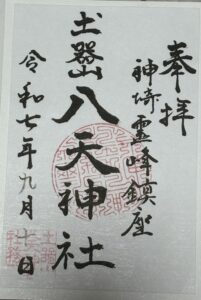 奉拝
神埼霊峰鎮座
土器山八天神社
令和七年九月七日